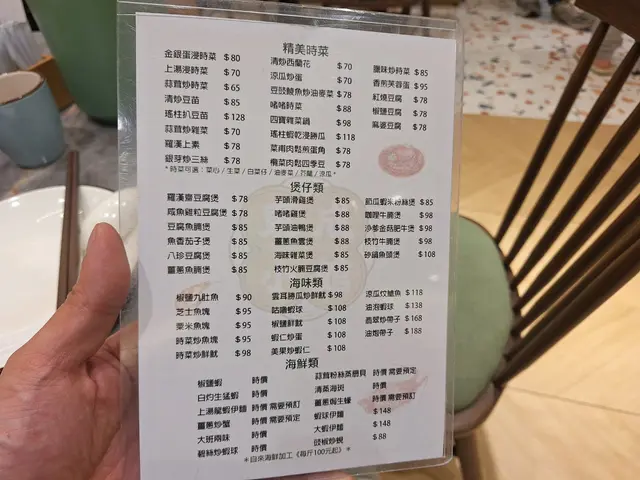 精美時菜
金銀蛋浸時菜 $80
上湯浸時菜 $70
蒜茸炒時菜 $65
清炒豆苗 $85
瑤柱扒豆苗 $128
蒜茸炒雜菜 $70
羅漢上素 $78
銀芽炒三絲 $78
清炒西蘭花 $70
涼瓜炒蛋 $70
豆豉鯪魚炒油麥菜 $78
啫啫時菜 $88
四寶雜菜鍋 $98
瑤柱蝦乾浸勝瓜 $118
菜甫肉鬆煎蛋角 $78
欖菜肉鬆四季豆 $78
臘味炒時菜 $85
香煎芙蓉蛋 $95
紅燒豆腐 $78
椒鹽豆腐 $78
麻婆豆腐 $78
*時菜可選：菜心/生菜/白菜仔/油麥菜/芥蘭/涼瓜*
煲仔類
羅漢齋豆腐煲 $78
咸魚雞粒豆腐煲 $78
豆腐魚腩煲 $85
魚香茄子煲 $85
八珍豆腐煲 $85
薑蔥魚腩煲 $85
芋頭滑雞煲 $85
啫啫雞煲 $88
芋頭油鴨煲 $88
薑蔥魚雲煲 $88
海味雜菜煲 $85
枝竹火腩豆腐煲 $85
節瓜蝦米粉絲煲 $85
咖喱牛腩煲 $98
沙爹金菇肥牛煲 $98
枝竹牛腩煲 $98
砂鍋魚頭煲 $108
海味類
椒鹽九肚魚 $90
芝士魚塊 $95
粟米魚塊 $95
時菜炒魚塊 $95
時菜炒鮮魷 $98
雲耳勝瓜炒鮮魷 $98
咕嚕蝦球 $108
椒鹽鮮魷 $108
蝦仁炒蛋 $108
美果炒蝦仁 $108
涼瓜炆鱸魚 $118
油泡蝦球 $138
翡翠炒帶子 $168
油泡帶子 $188
海鮮類
椒鹽蝦 時價
白灼生猛蝦 時價
上湯龍蝦伊麵 時價 需要預訂
薑蔥炒蟹 時價 需要預定
大班兩味 時價
碧絲炒蝦球 時價
蒜茸粉絲蒸扇貝 時價 需要預定
清蒸海斑 時價
薑蔥焗生蠔 時價 需要預訂
蝦球伊麵 $148
大蝦伊麵 $148
豉椒炒蜆 $88
*自來海鮮加工《每斤100元起》*